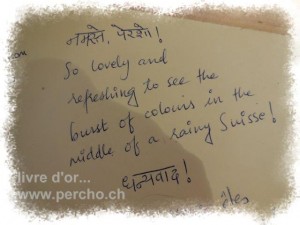 नमस्ते, पेरशो!
So lovely and
refreshing to see the
burst of colours in the
middle of a rainy Suisse!
धन्यवाद!
livre d'or...
www.percho.ch